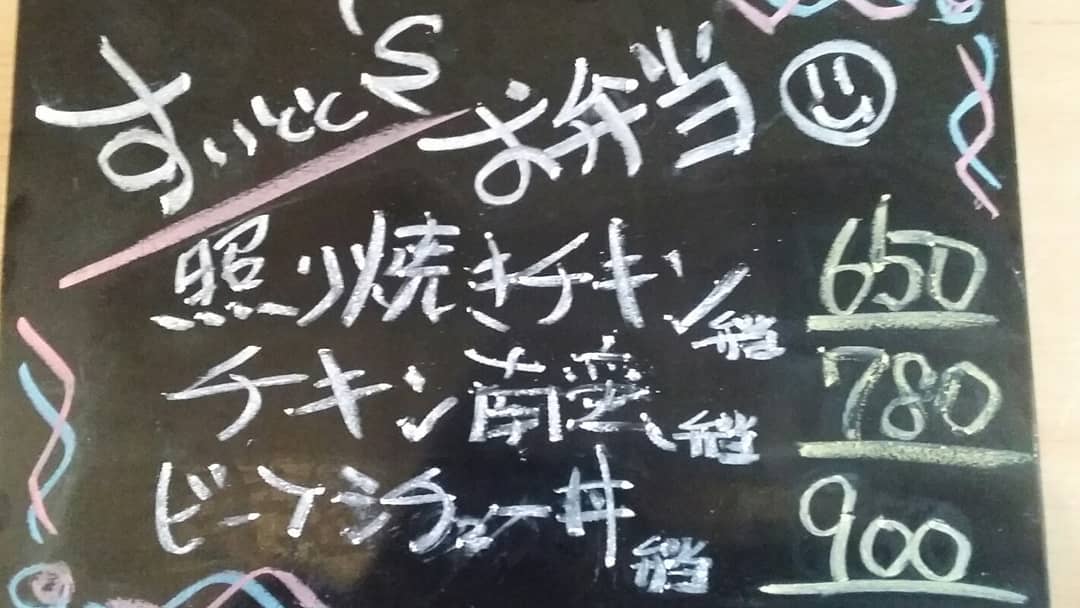 すぃとと's
お弁当
照り焼きチキン弁当 650
チキン南蛮弁当 780
ビーフシチュー丼弁当 900